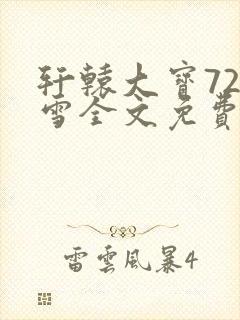 轩辕大寳72
雪全文免費
雷雲風暴4